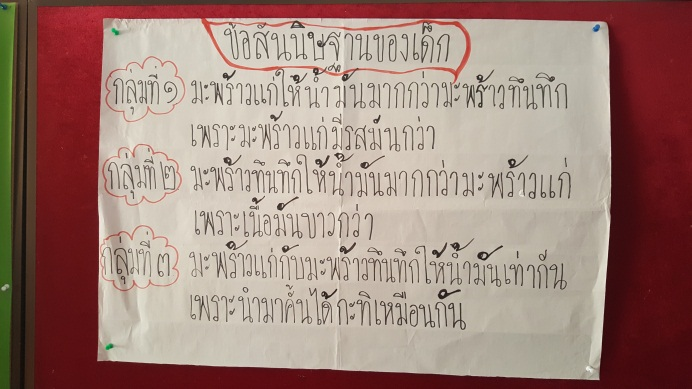 ข้อสันนิษฐานของเด็ก
กลุ่มที่ ๑ มะพร้าวแก่ให้น้ำมันมากกว่ามะพร้าวทึนทึก
เพราะมะพร้าวแก่มีรสมันกว่า
กลุ่มที่ ๒ มะพร้าวทึนทึกให้น้ำมันมากกว่ามะพร้าวแก่
เพราะเนื้อมันขาวกว่า
กลุ่มที่ ๓ มะพร้าวแก่กับมะพร้าวทึนทึกให้น้ำมันเท่ากัน
เพราะนำมาคั้นได้กะทิเหมือนกัน